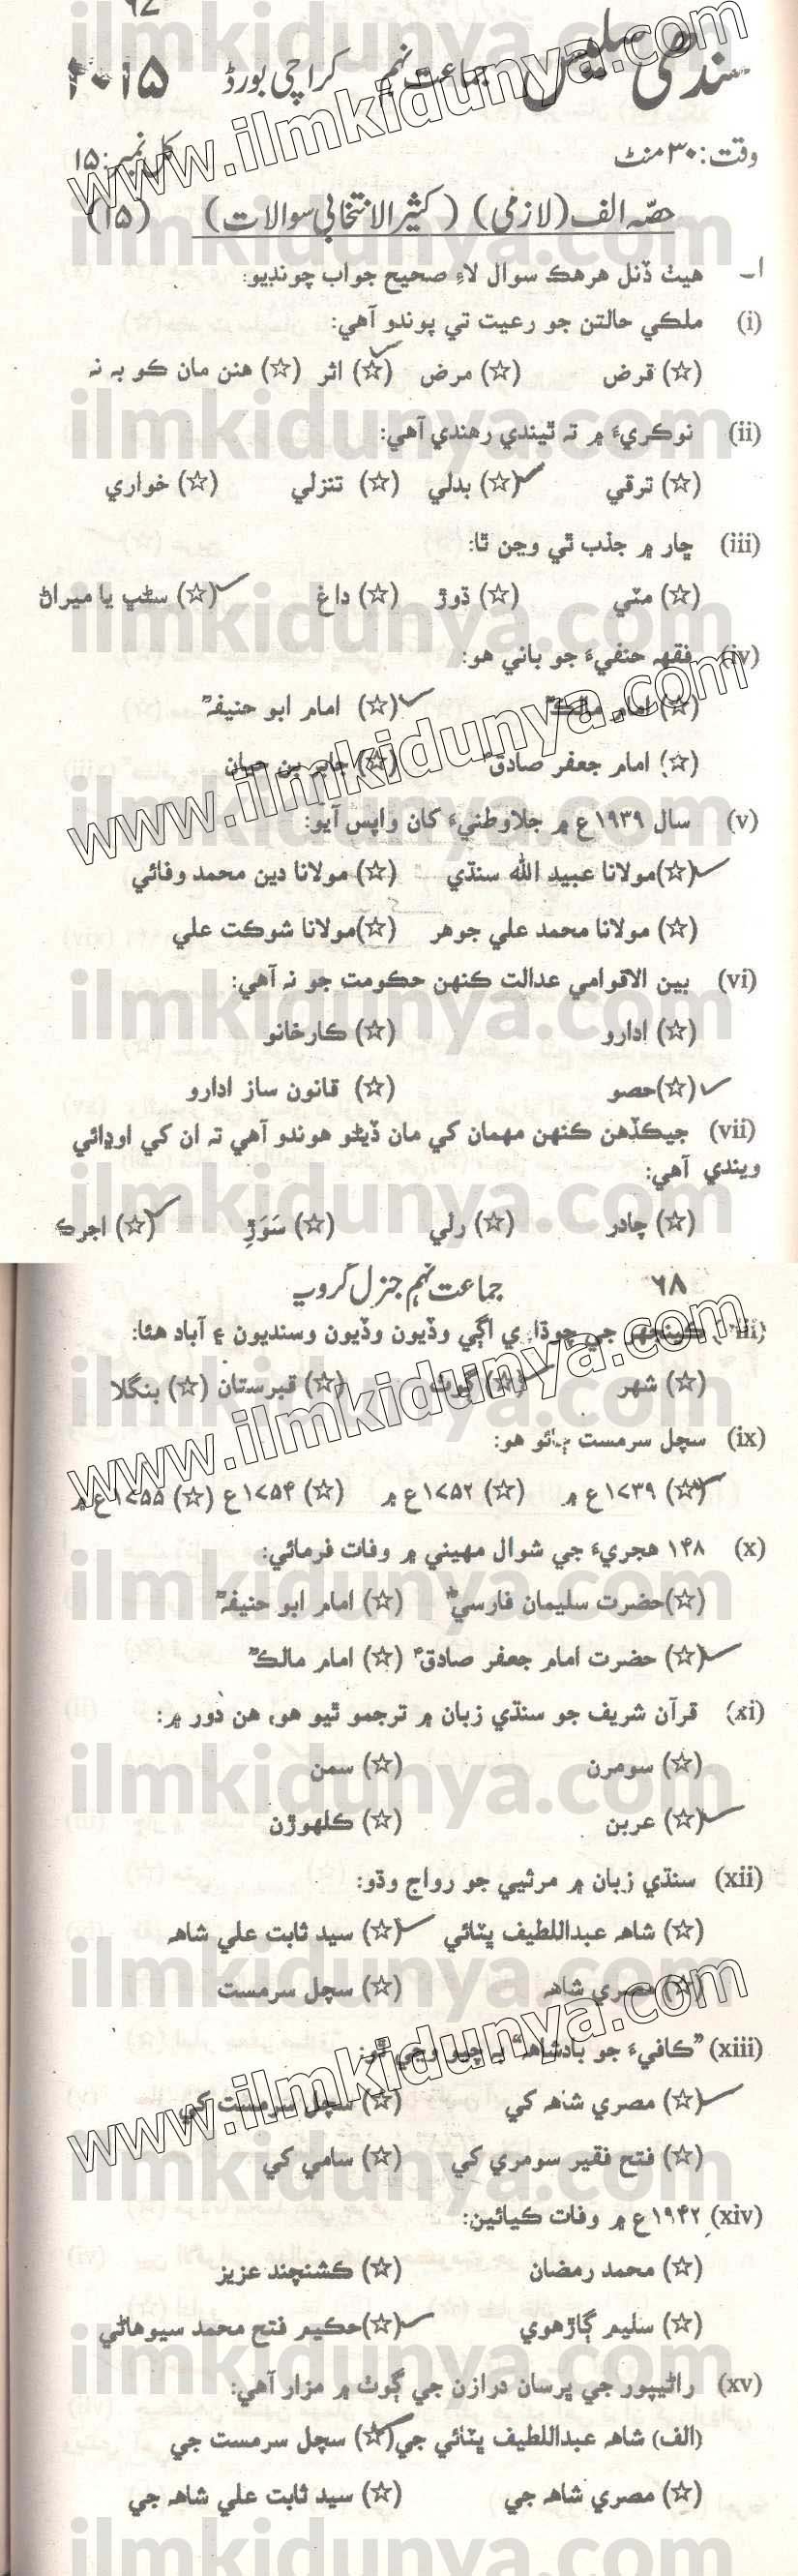 سندھی سلیس جماعت نہم کراچی بورڈ ۲۰۱۵
وقت: ۳۰ منٹ کل نمبر: ۱۵
حصّہ الف (لازمی) (کثیر الانتخابی سوالات) (۱۵)
۱۔ هيٺ ڏنل هرهڪ سوال لاءِ صحيح جواب چونڊيو:
(i) ملڪي حالتن جو رعيت تي پوندو آهي:
(☆) قرض (☆) مرض (☆) اثر (☆) هنن مان ڪو به نہ
(ii) نوڪريءَ ۾ تہ ٿيندي رهندي آهي:
(☆) ترقي (☆) بدلي (☆) تنزلي (☆) خواري
(iii) چار ۾ جذب ٿي وڃن ٿا:
(☆) مٽي (☆) ڌوڙ (☆) داغ (☆) سڻڀ يا ميراڻ
(iv) فقهہ حنفيءَ جو باني هو:
(☆) امام مالڪؒ (☆) امام ابو حنيفہؒ
(☆) امام جعفر صادقؑ (☆) جابر بن حيان
(v) سال ۱۹۳۹ع ۾ جلاوطنيءَ کان واپس آيو:
(☆) مولانا عبيد الله سنڌي (☆) مولانا دين محمد وفائي
(☆) مولانا محمد علي جوهر (☆) مولانا شوڪت علي
(vi) بين الاقوامي عدالت ڪنهن حڪومت جو نہ آهي:
(☆) ادارو (☆) ڪارخانو
(☆) حصو (☆) قانون ساز ادارو
(vii) جيڪڏهن ڪنهن مهمان کي مان ڏيڻو هوندو آهي تہ ان کي اوڍائي
ويندي آهي:
(☆) چادر (☆) رلي (☆) سَوَڙِ (☆) اجرڪ
۶۸ جماعت نہم جنرل گروپ
ڪينجهر جي چوڌاري اڳي وڏيون وڏيون وسنديون ۽ آباد هئا:
(☆) شهر (☆) ڳوٺ (☆) قبرستان (☆) بنگلا
(ix) سچل سرمست ڄائو هو:
(☆) ۱۷۳۹ع ۾ (☆) ۱۷۵۲ع ۾ (☆) ۱۷۵۴ع (☆) ۱۷۵۵ع ۾
(x) ۱۴۸ هجريءَ جي شوال مهيني ۾ وفات فرمائي:
(☆) حضرت سليمان فارسيؓ (☆) امام ابو حنيفہؒ
(☆) حضرت امام جعفر صادقؑ (☆) امام مالڪؒ
(xi) قرآن شريف جو سنڌي زبان ۾ ترجمو ٿيو هو، هن دور ۾:
(☆) سومرن (☆) سمن
(☆) عربن (☆) ڪلهوڙن
(xii) سنڌي زبان ۾ مرثيي جو رواج وڌو:
(☆) شاهہ عبداللطيف ڀٽائي (☆) سيد ثابت علي شاهہ
(☆) مصري شاهہ (☆) سچل سرمست
(xiii) ”ڪافيءَ جو بادشاهہ“ بہ چيو وڃي ٿو:
(☆) مصري شاهہ کي (☆) سچل سرمست کي
(☆) فتح فقير سومري کي (☆) سامي کي
(xiv) ۱۹۴۲ع ۾ وفات ڪيائين:
(☆) محمد رمضان (☆) ڪشنچند عزيز
(☆) سليم ڳاڙهوي (☆) حڪيم فتح محمد سيوهاڻي
(xv) راڻيپور جي ڀرسان درازن جي ڳوٺ ۾ مزار آهي:
(الف) شاهہ عبداللطيف ڀٽائي جي (☆) سچل سرمست جي
(☆) مصري شاهہ جي (☆) سيد ثابت علي شاهہ جي
www.ilmkidunya.com
ilmkidunya.com